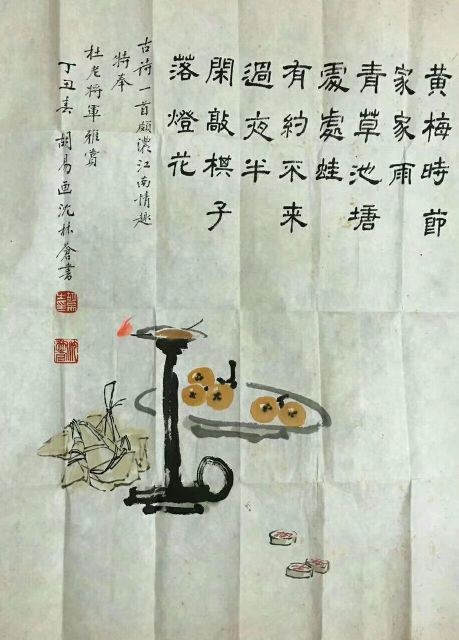 黄梅時節
家家雨
青草池塘
處處蛙
有約不來
過夜半
閑敲棋子
落燈花
古詩一首頗濃江南情趣
特奉
杜老將軍雅賞
丁丑春 胡易画沈林蒼書